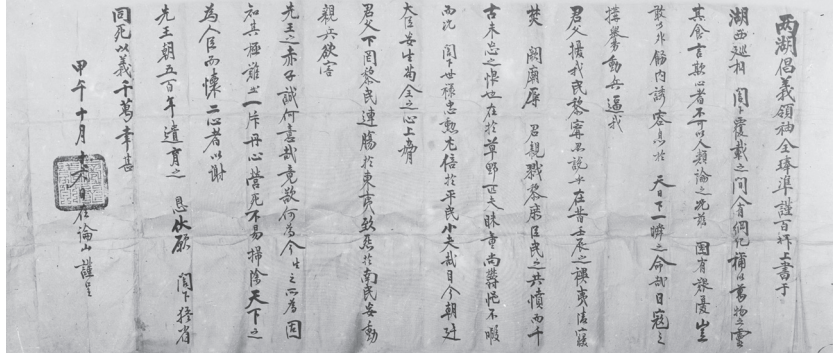 兩湖倡義領袖全琫準謹百拜上書于
湖西巡相 閤下 覆載之間人有綱紀稱以萬物之靈
其食言欺心者不可以人類論之況玆 國有艱憂豈
敢以外飾內誘容息於 天日下一瞬之命哉日寇之
搆釁動兵逼我
君父擾我民黎寧忍說乎在昔壬辰之禍夷陵寢
焚 闕廟辱 君親戮黎庶臣民之共憤而千
古未忘之恨也在於草野匹夫昧童尚鬱悒不暇
而況 閤下世祿忠勳尤倍於平民小夫哉目今朝廷
大臣妄生苟全之心上脅
君父下罔黎民連腸於東夷致怨於南民妄動
親兵欲害
先王之赤子誠何意哉竟欲何為今生之所為固
知其極難然一片丹心營死不易掃除天下之
為人臣而懷二心者以謝
先王朝五百年遺育之 恩伏願 閤下猛省
同死以義千萬幸甚
甲午十月十六日在論山謹呈